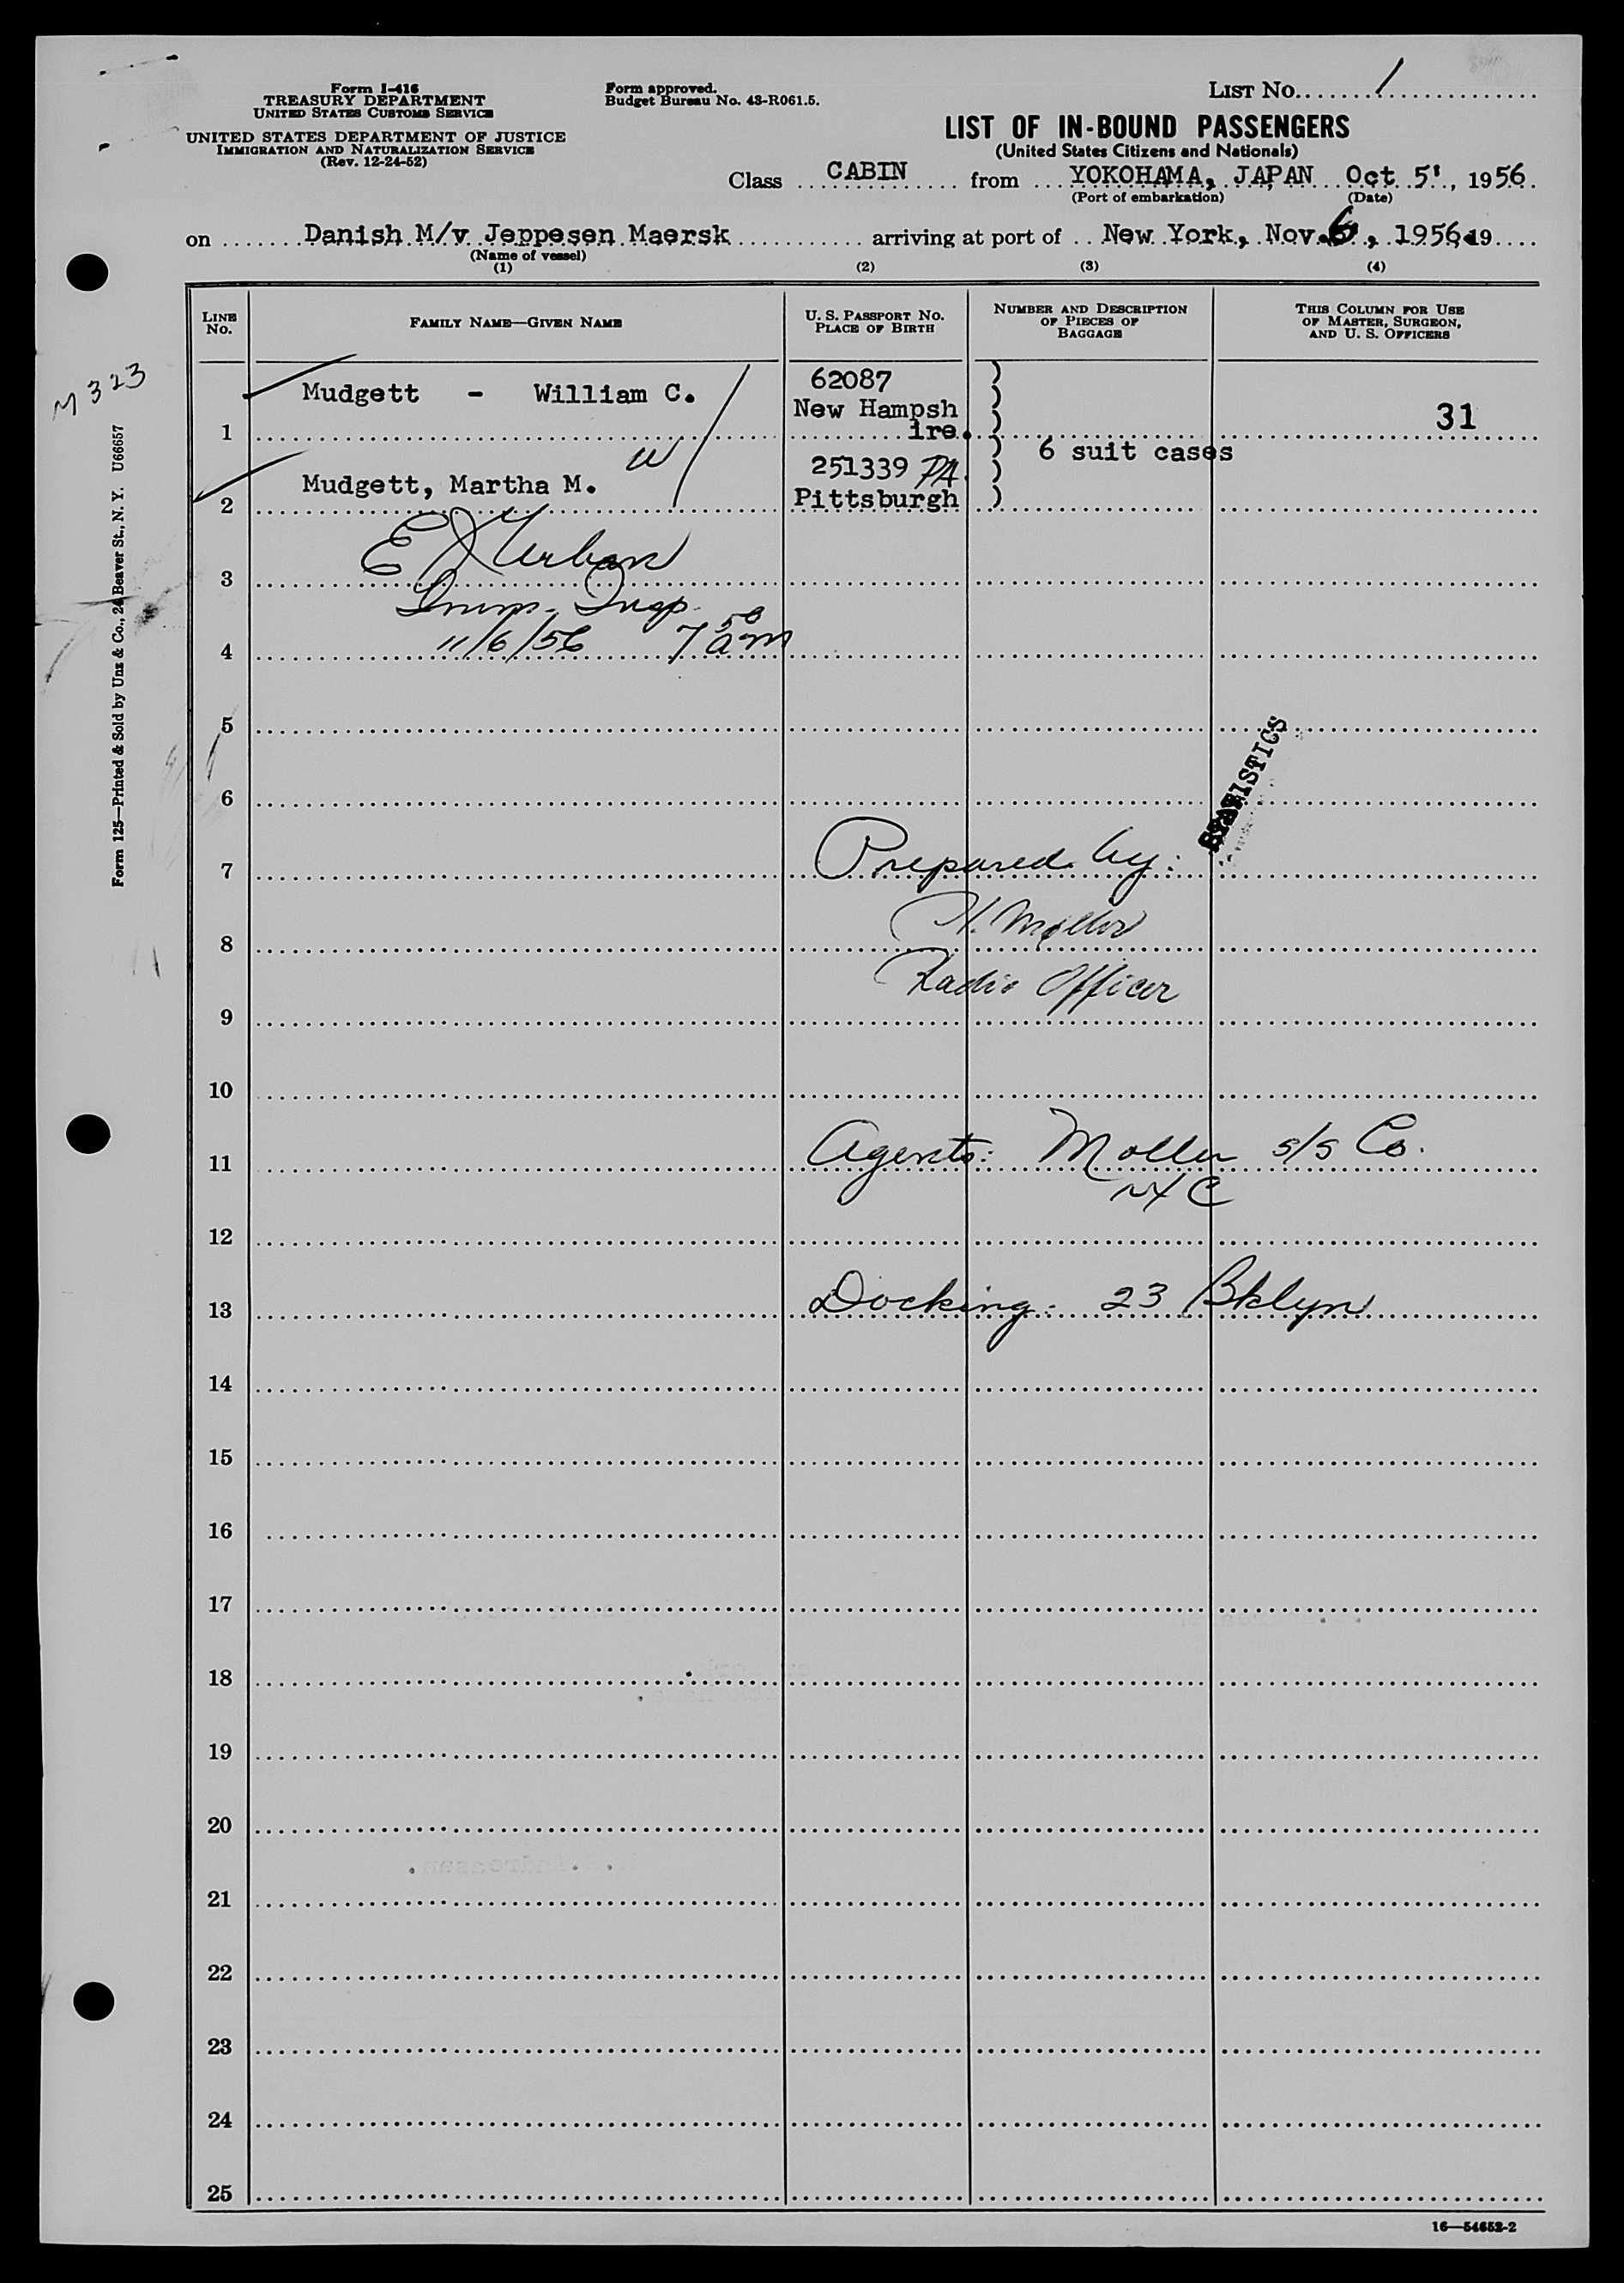 Form I-416
TREASURY DEPARTMENT
UNITED STATES CUSTOMS SERVICE
UNITED STATES DEPARTMENT OF JUSTICE
IMMIGRATION AND NATURALIZATION SERVICE
(Rev. 12-24-52)
Form approved.
Budget Bureau No. 43-R061.5.
LIST No. 1
LIST OF IN-BOUND PASSENGERS
(United States Citizens and Nationals)
Class CABIN from YOKOHAMA, JAPAN Oct 5', 1956
(Port of embarkation) (Date)
on Danish M/v Jeppesen Maersk arriving at port of New York, Nov. 6, 1956 19
(Name of vessel)
(1) (2) (3) (4)
LINE No. FAMILY NAME—GIVEN NAME U. S. PASSPORT No. PLACE OF BIRTH NUMBER AND DESCRIPTION OF PIECES OF BAGGAGE THIS COLUMN FOR USE OF MASTER, SURGEON, AND U. S. OFFICERS
M 323
Mudgett - William C. 62087
New Hampsh
1 ire. 31
6 suit cases
W 251339 PA.
2 Mudgett, Martha M. Pittsburgh
E J Urban
3
Imm. Insp.
4 11/6/56 7 50 am
5
STATISTICS
6
7 Prepared by:
8 H. Møller
Radio Officer
9
10
11 Agents: Moller s/s Co.
NYC
12
13 Docking: 23 Bklyn
14
15
16
17
18
19
20
21
22
23
24
25
Form 125—Printed & Sold by Unz & Co., 24 Beaver St., N. Y. U6657
16—54652-2